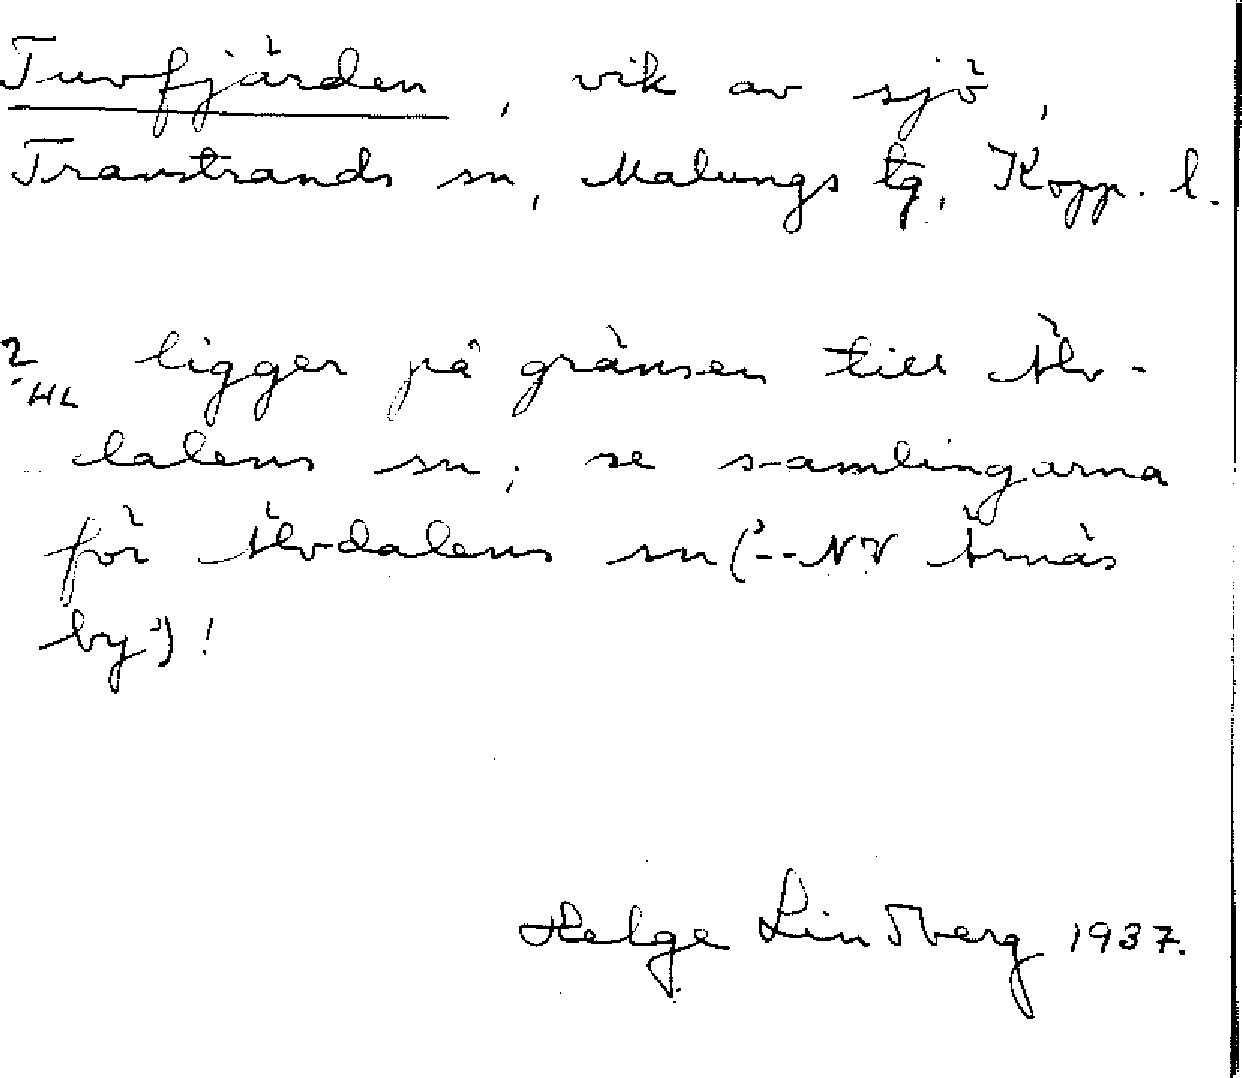 Tuvfjärden, vik av sjö,
Transtrands sn, Malungs tg, Kopp. l.
? HL ligger på gränsen till Älv-
dalens sn; se samlingarna
för Älvdalens sn ("--NV Arnäs
by")!
Helge Lindberg 1937.